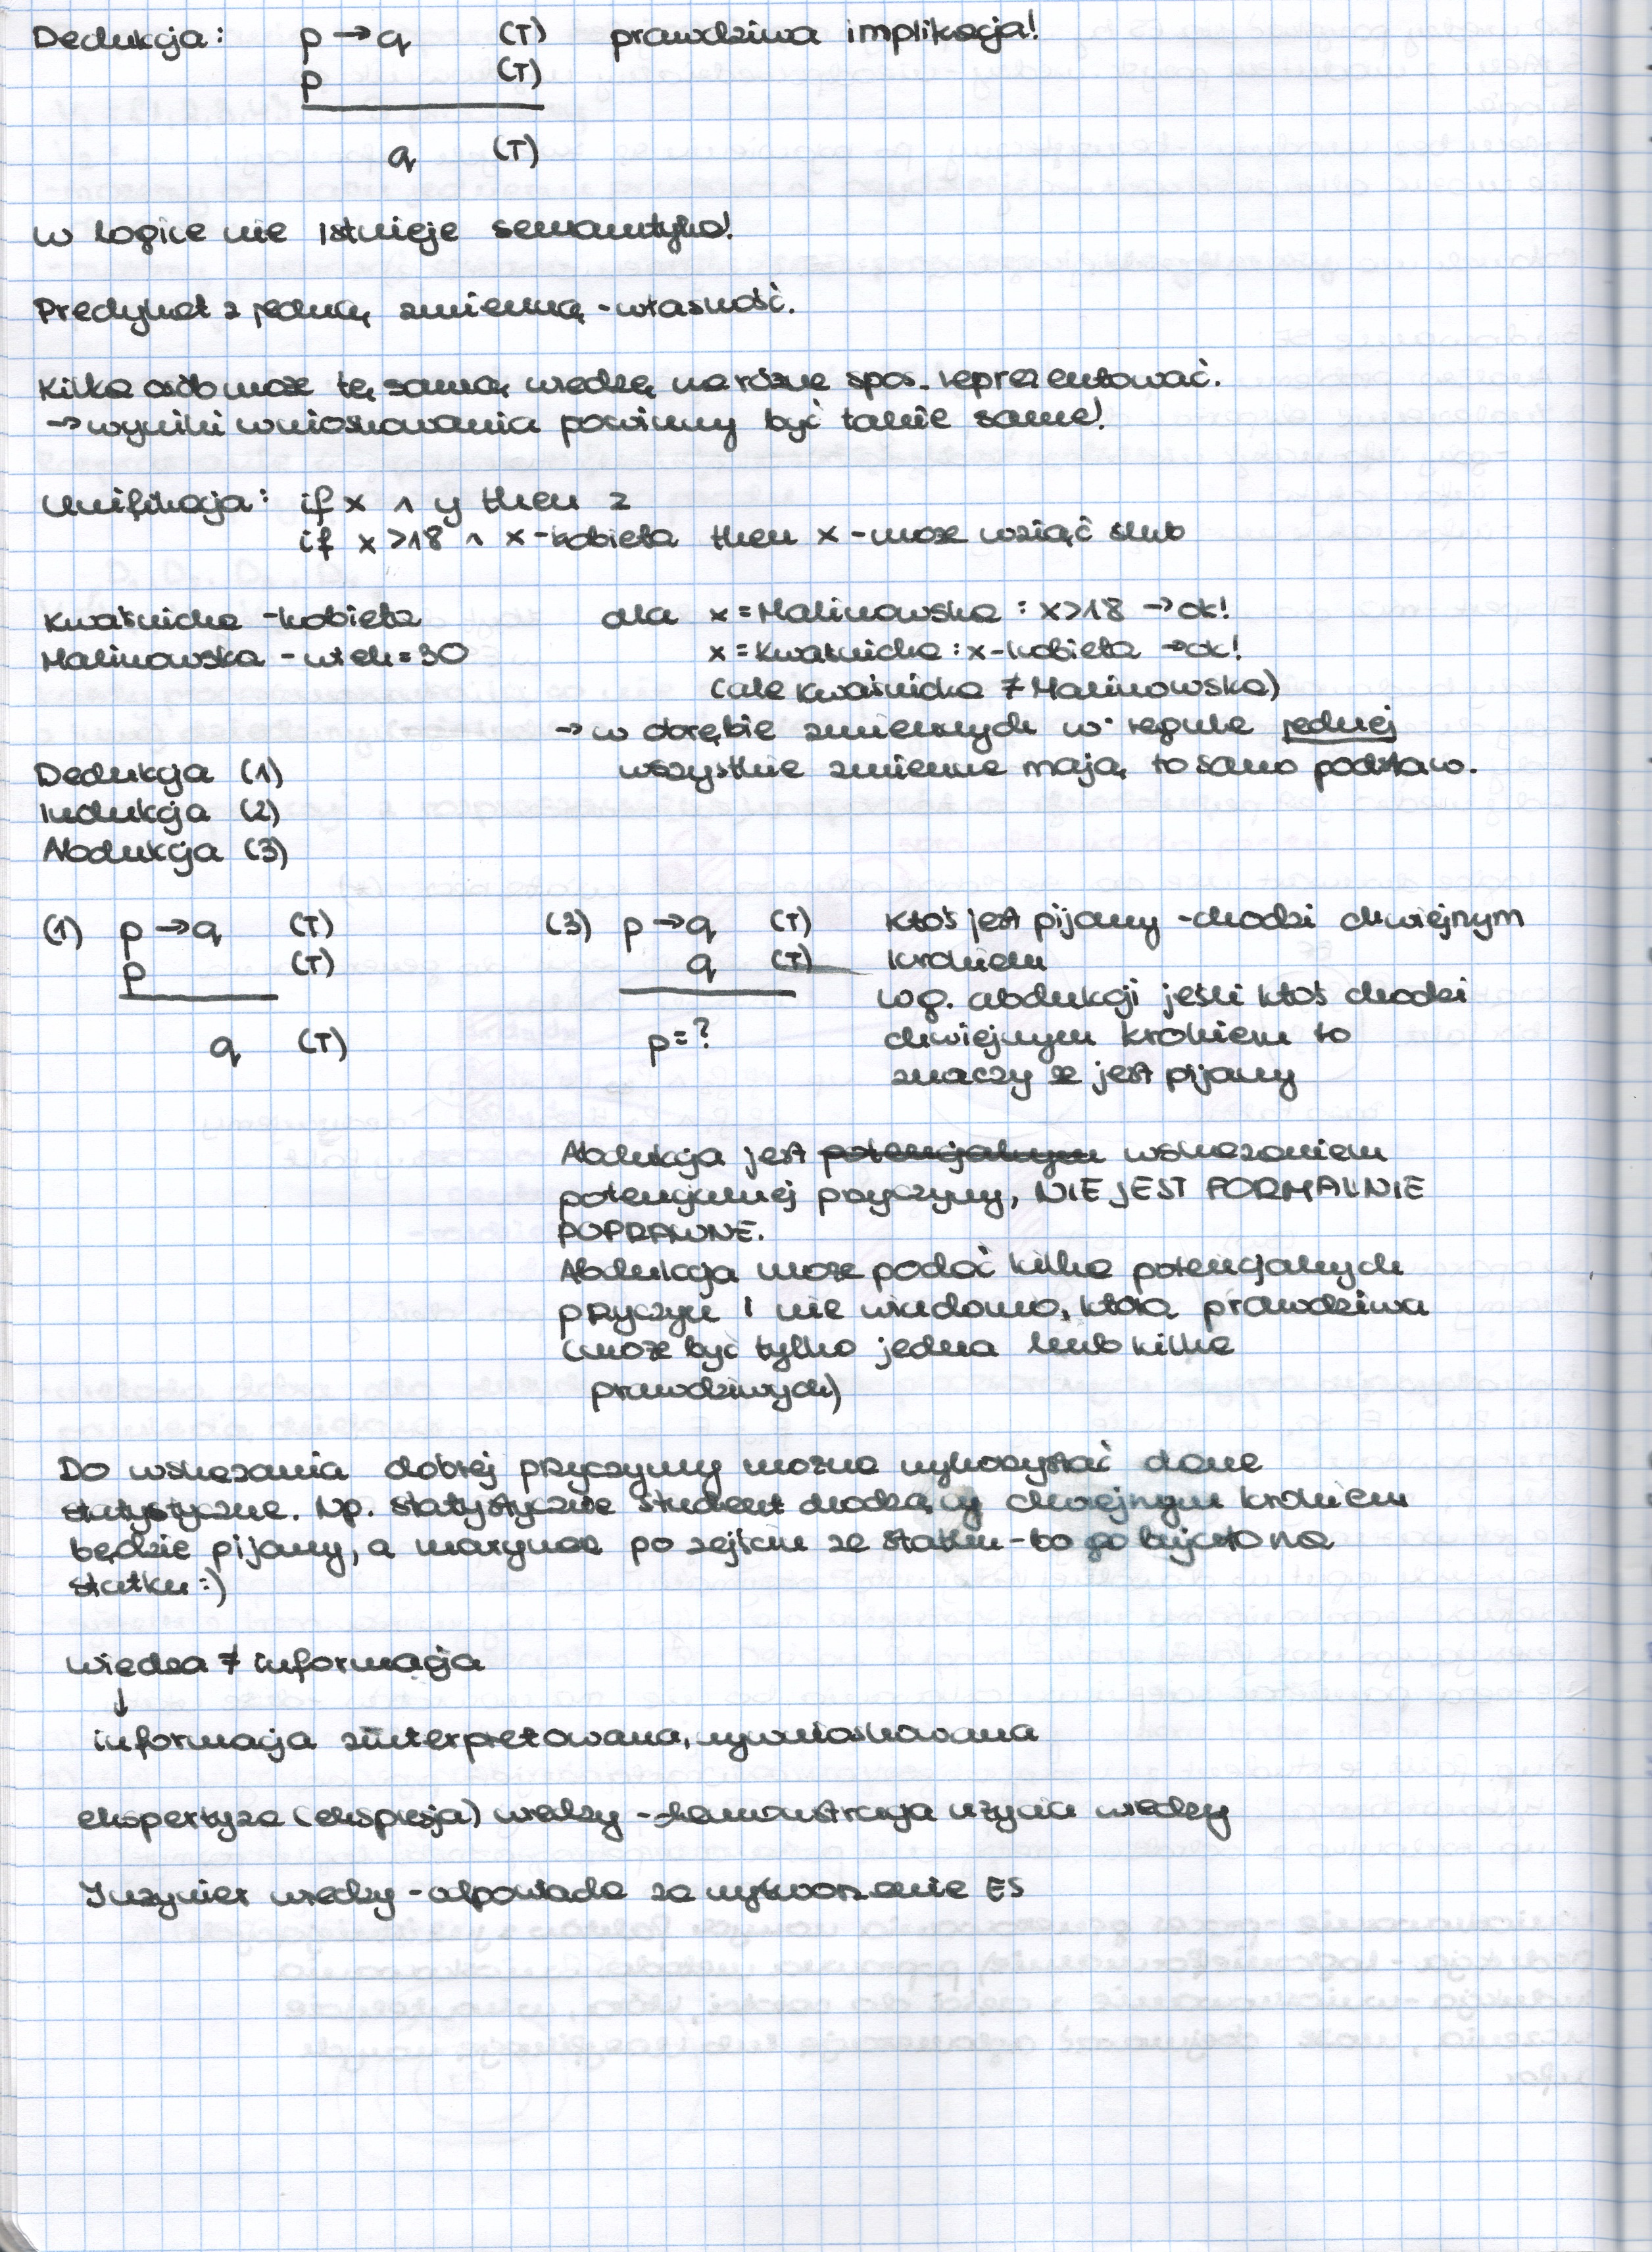 Dedukcja: p → q (T) prawdziwa implikacja!
p (T)
q (T)
w logice nie istnieje semantyka!
Predykat z jedną zmienną - własność.
Kilka osób może tę samą wiedzę na różne spos. reprezentować.
→ wyniki wnioskowania powinny być takie same!
Unifikacja: if x ∧ y then z
if x >18 ∧ x-kobieta then x - może wziąć ślub
Kwaśnicka - kobieta
Malinowska - wiek = 30
dla x = Malinowska : x>18 → ok!
x = Kwaśnicka : x-kobieta → ok!
(ale Kwaśnicka ≠ Malinowska)
→ w obrębie zmiennych w regule jednej
wszystkie zmienne mają to samo podstaw.
Dedukcja (1)
Indukcja (2)
Abdukcja (3)
(1) p → q (T)
p (T)
q (T)
(3) p → q (T)
q (T)
p = ?
Ktoś jest pijany - chodzi chwiejnym
krokiem
wg. abdukcji jeśli ktoś chodzi
chwiejnym krokiem to
znaczy że jest pijany
Abdukcja jest potencjalnym wskazaniem
potencjalnej przyczyny, NIE JEST FORMALNIE
POPRAWNE.
Abdukcja może podać kilka potencjalnych
przyczyn i nie wiadomo, która prawdziwa
(może być tylko jedna lub kilka
prawdziwych)
Do wskazania dobrej przyczyny można wykorzystać dane
statystyczne. Np. statystycznie student chodzący chwiejnym krokiem
będzie pijany, a marynarz po zejściu ze statku - bo go bujało na
statku :)
wiedza ≠ informacja
↓
informacja zinterpretowana, wywnioskowana
ekspertyza (ekspresja) wiedzy - demonstracja użycia wiedzy
Inżynier wiedzy - odpowiada za wytworzenie ES